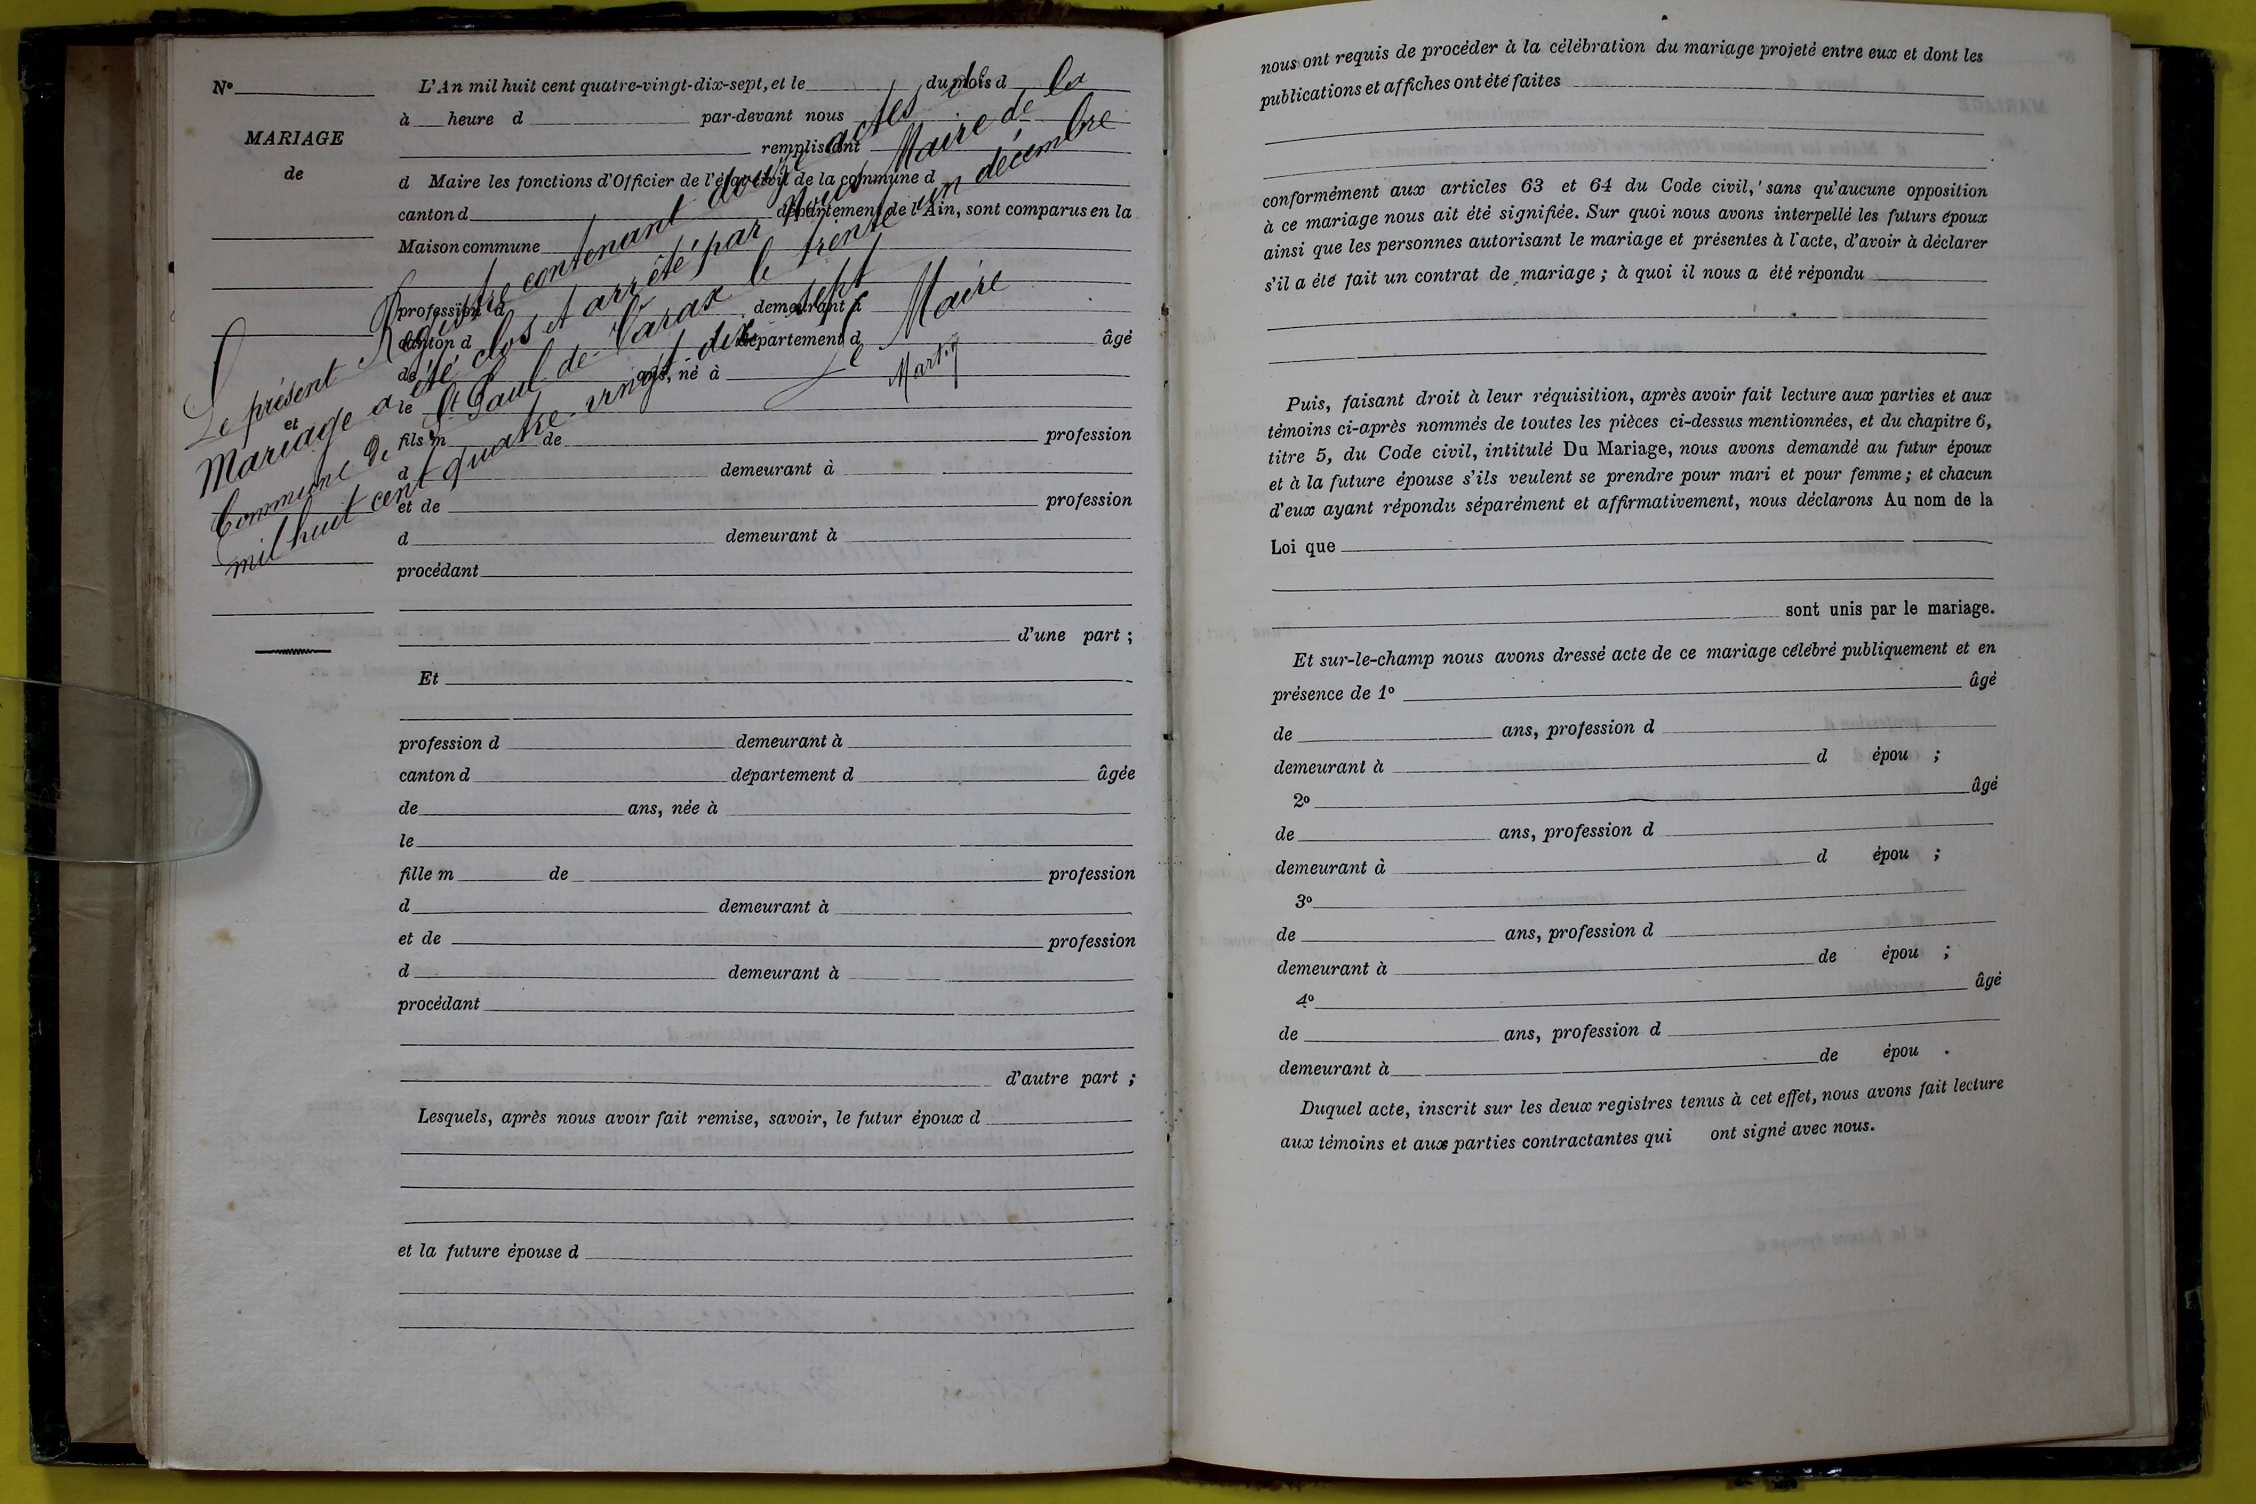 N° L'An mil huit cent quatre-vingt-dix-sept, et le du mois d
MARIAGE
de
et
à heure d par-devant nous
remplissant
d Maire les fonctions d'Officier de l'état civil de la commune d
canton d département de l'Ain, sont comparus en la
Maison commune
profession d demeurant à
canton d département d âgé
de ans, né à
le
fils m de profession
d demeurant à
et de profession
d demeurant à
procédant
d'une part ;
Le présent Registre contenant douze actes de
Mariage a été clos et arrêté par Nous Maire de la
Commune de St Paul de Varax le trente un décembre
mil huit cent quatre-vingt dix sept
Le Maire
Et
profession d demeurant à
canton d département d âgée
de ans, née à
le
fille m de profession
d demeurant à
et de profession
d demeurant à
procédant
d'autre part ;
Lesquels, après nous avoir fait remise, savoir, le futur époux d
et la future épouse d
nous ont requis de procéder à la célébration du mariage projeté entre eux et dont les
publications et affiches ont été faites
conformément aux articles 63 et 64 du Code civil, sans qu'aucune opposition
à ce mariage nous ait été signifiée. Sur quoi nous avons interpellé les futurs époux
ainsi que les personnes autorisant le mariage et présentes à l'acte, d'avoir à déclarer
s'il a été fait un contrat de mariage ; à quoi il nous a été répondu
Puis, faisant droit à leur réquisition, après avoir fait lecture aux parties et aux
témoins ci-après nommés de toutes les pièces ci-dessus mentionnées, et du chapitre 6,
titre 5, du Code civil, intitulé Du Mariage, nous avons demandé au futur époux
et à la future épouse s'ils veulent se prendre pour mari et pour femme ; et chacun
d'eux ayant répondu séparément et affirmativement, nous déclarons Au nom de la
Loi que
sont unis par le mariage.
Et sur-le-champ nous avons dressé acte de ce mariage célébré publiquement et en
présence de 1° âgé
de ans, profession d
demeurant à d épou ;
2° âgé
de ans, profession d
demeurant à d épou ;
3°
de ans, profession d
demeurant à de épou ;
4° âgé
de ans, profession d
demeurant à de épou .
Duquel acte, inscrit sur les deux registres tenus à cet effet, nous avons fait lecture
aux témoins et aux parties contractantes qui ont signé avec nous.